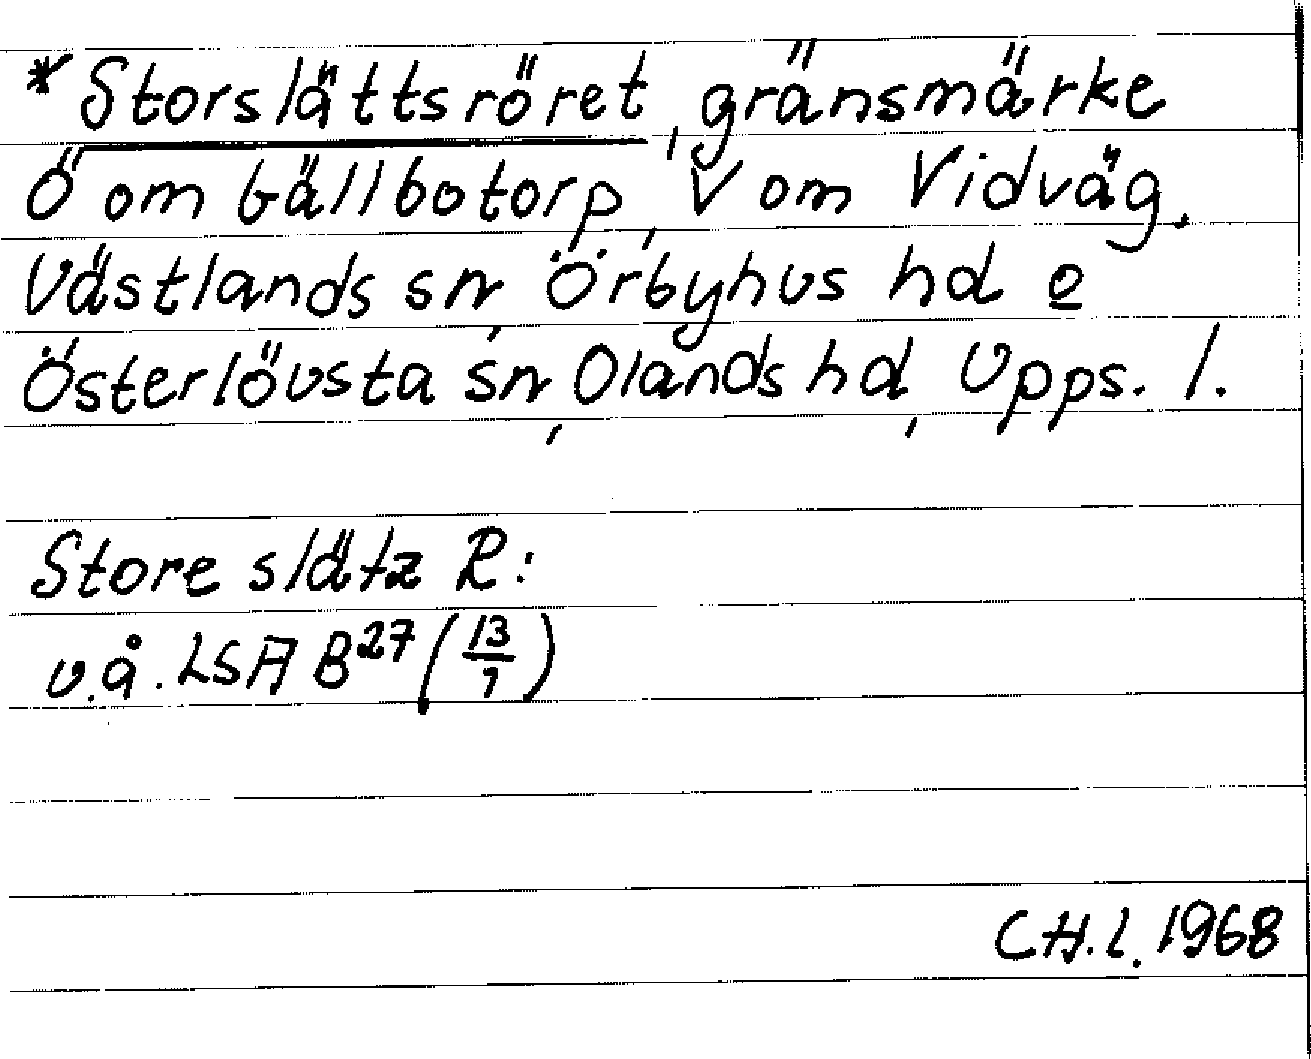 *Storslättsröret, gränsmärke
Ö om bällbotorp, V om Vidväg.
Västlands sn, Örbyhus hd o
Österlövsta sn, Olands hd, Upps. l.
Store slätz R:
u.å. LSA B27 (13/7)
C.H.L. 1968